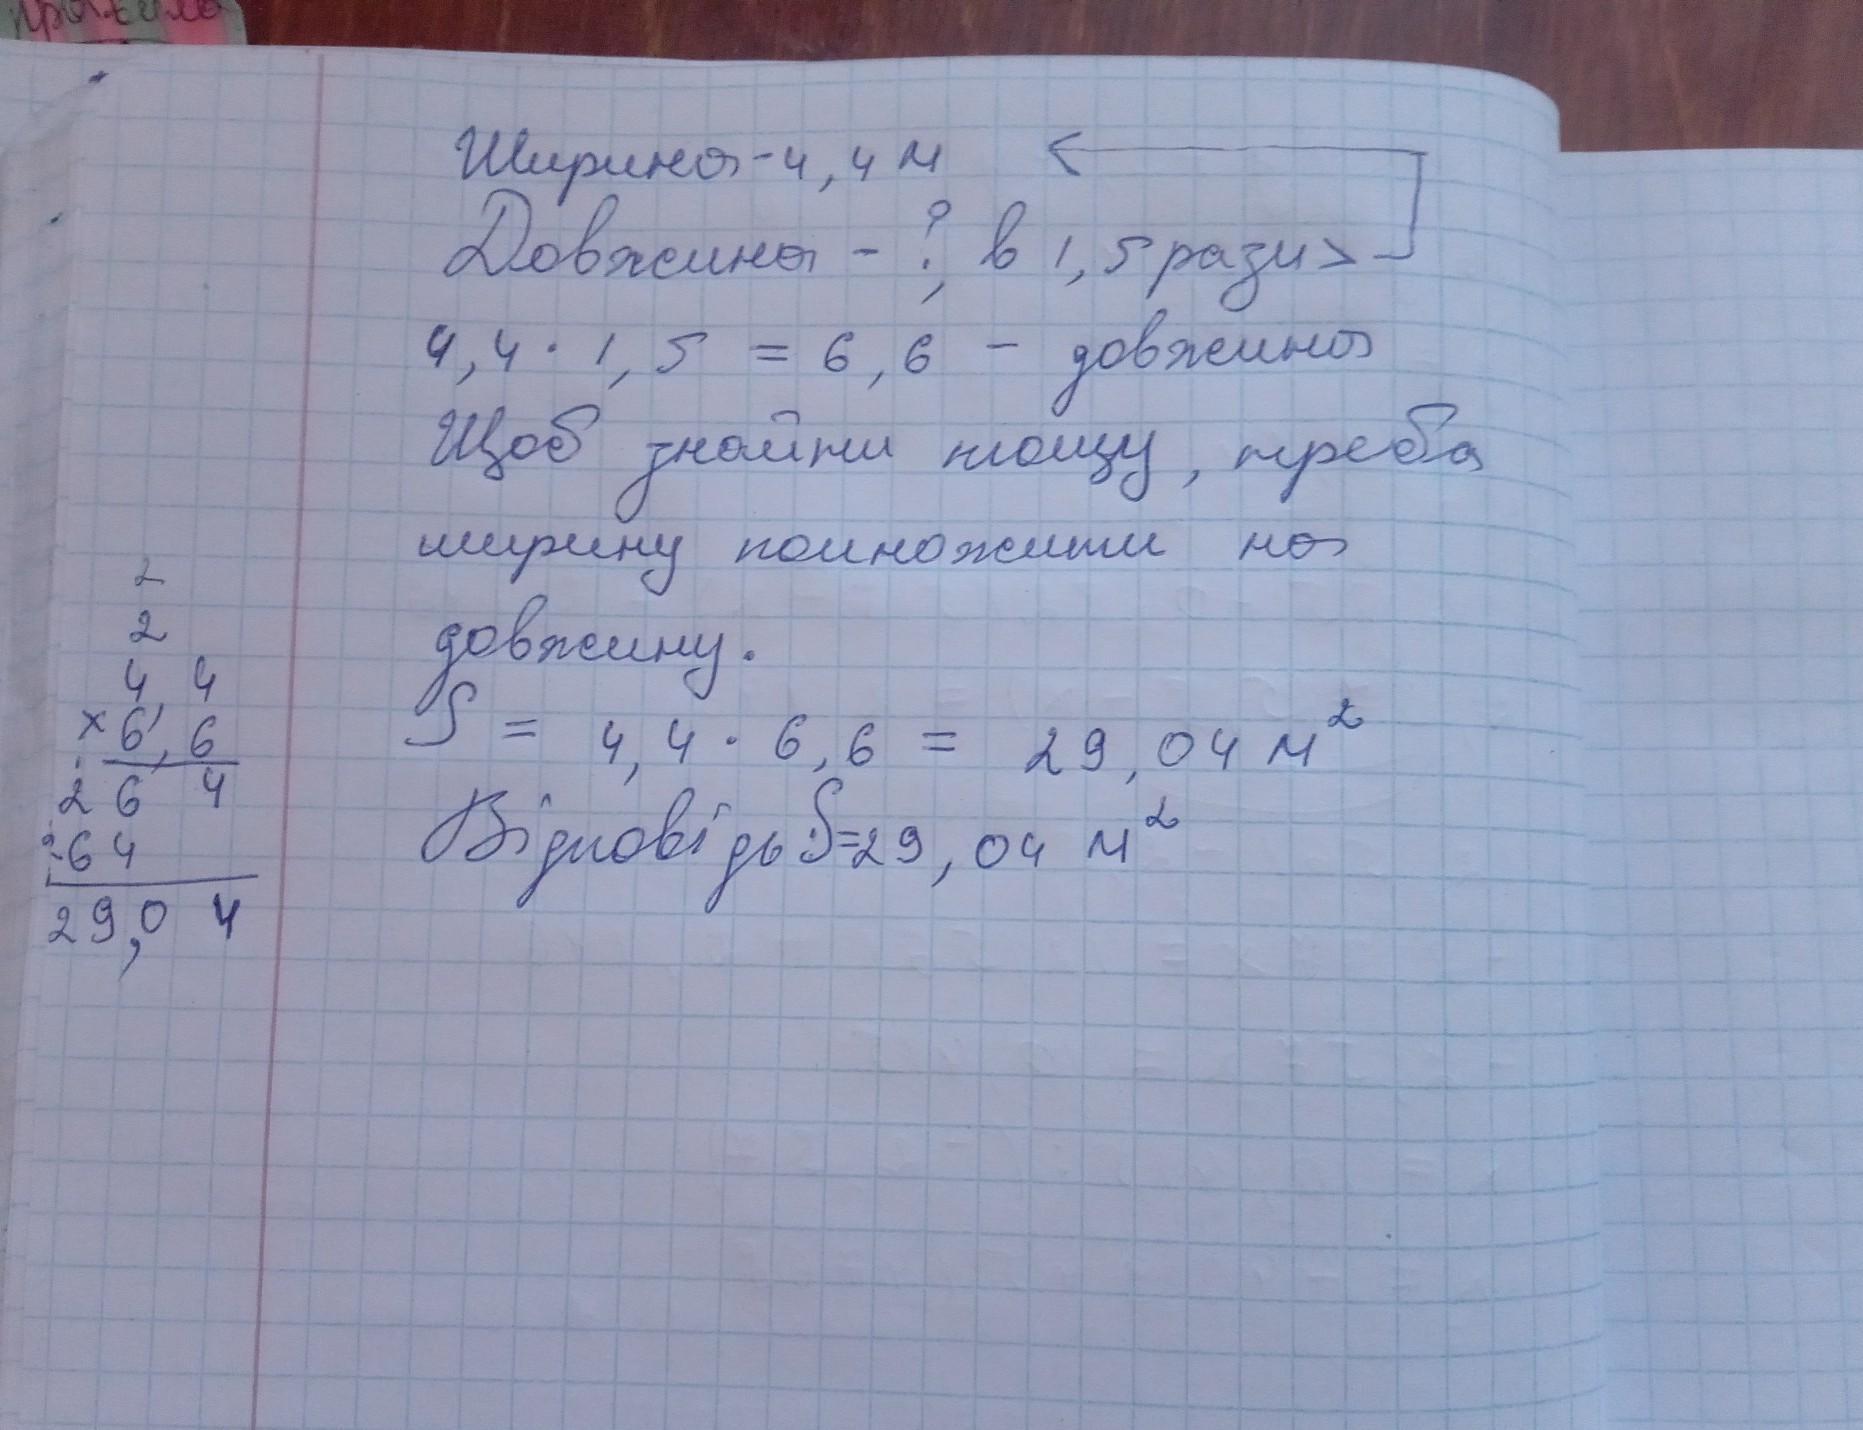 Ширина - 4,4 м
Довжина - ?, в 1,5 рази >
4,4 · 1,5 = 6,6 - довжина
Щоб знайти площу, треба
ширину помножити на
довжину.
S = 4,4 · 6,6 = 29,04 м²
Відповідь S=29,04 м²
2
2
4,4
× 6,6
264
264
29,04